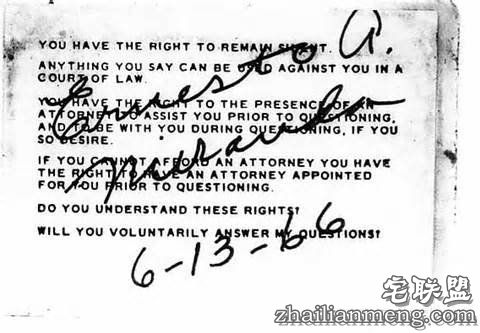 YOU HAVE THE RIGHT TO REMAIN SILENT.
ANYTHING YOU SAY CAN BE USED AGAINST YOU IN A
COURT OF LAW.
YOU HAVE THE RIGHT TO THE PRESENCE OF AN
ATTORNEY TO ASSIST YOU PRIOR TO QUESTIONING,
AND TO BE WITH YOU DURING QUESTIONING, IF YOU
SO DESIRE.
IF YOU CANNOT AFFORD AN ATTORNEY YOU HAVE
THE RIGHT TO HAVE AN ATTORNEY APPOINTED
FOR YOU PRIOR TO QUESTIONING.
DO YOU UNDERSTAND THESE RIGHTS?
WILL YOU VOLUNTARILY ANSWER MY QUESTIONS?
Ernesto A.
Miranda
6-13-66
宅联盟
zhailianmeng.com